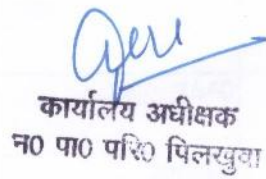 कार्यालय अधीक्षक
न0 पा0 परि0 पिलखुवा